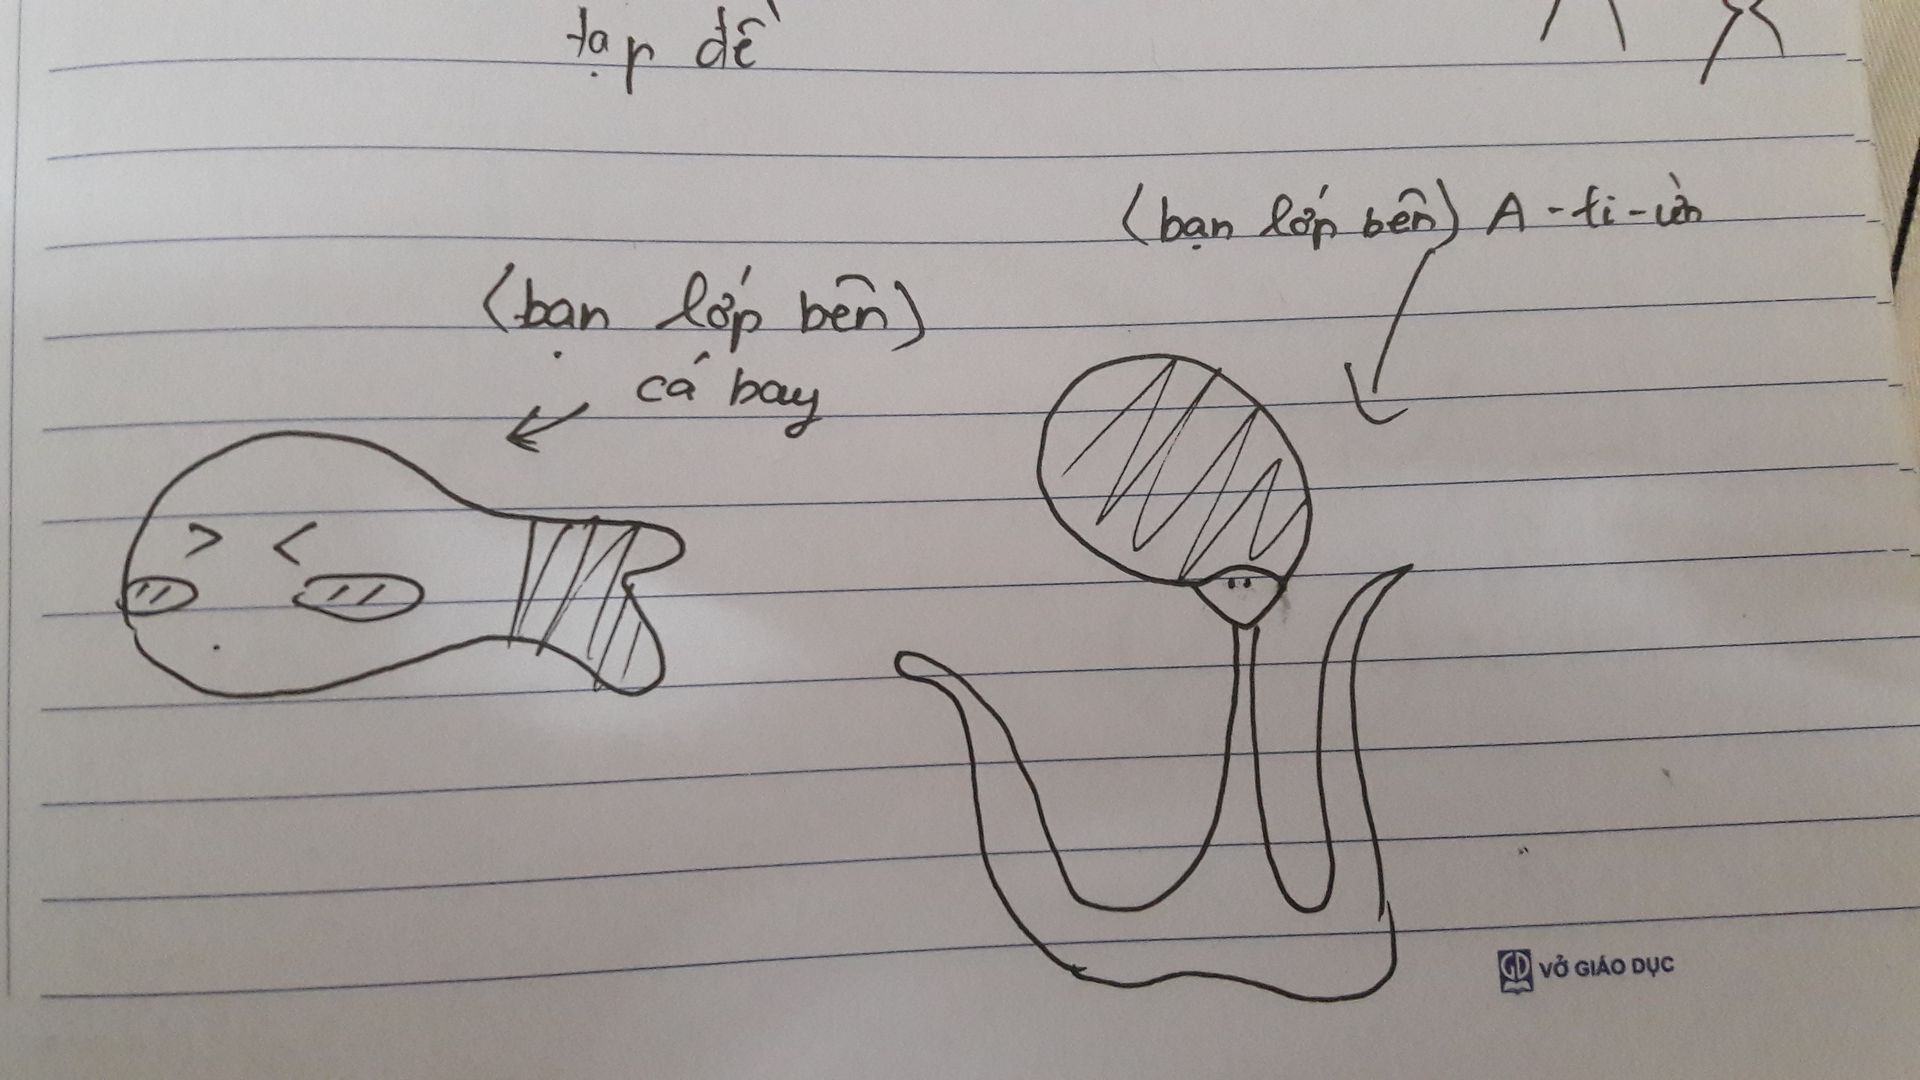 tạp dề
(bạn lớp bên) A-ti-ườn
(bạn lớp bên)
cá bay
> <
GD VỞ GIÁO DỤC